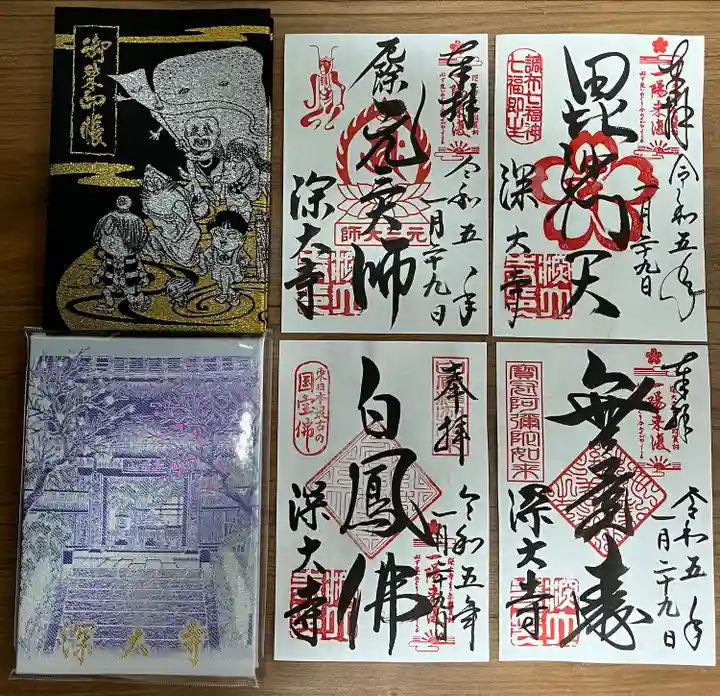 御朱印帳
深大寺
奉拝
一陽来復
元三大師
元三大師
深大寺
令和五年
一月二十九日
奉拝
一陽来復
調布七福神
七福即生
毘沙門天
深大寺
令和五年
一月二十九日
奉拝
東日本最古の
国宝佛
白鳳佛
深大寺
令和五年
一月二十九日
一陽来復
奉拝
一陽来復
寳冠阿彌陀如来
無量壽
深大寺
令和五年
一月二十九日